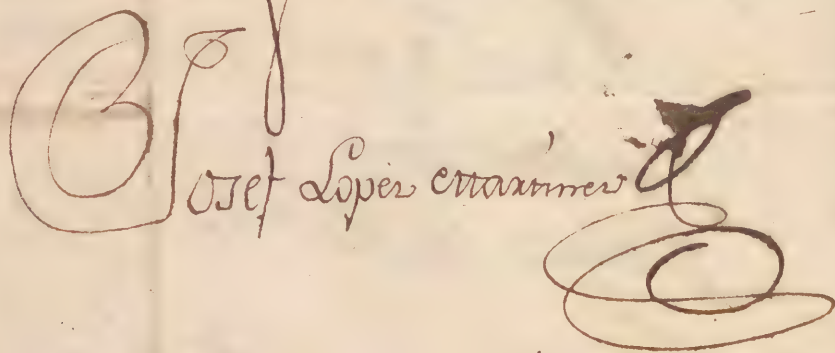 Josef Lopez Martinez